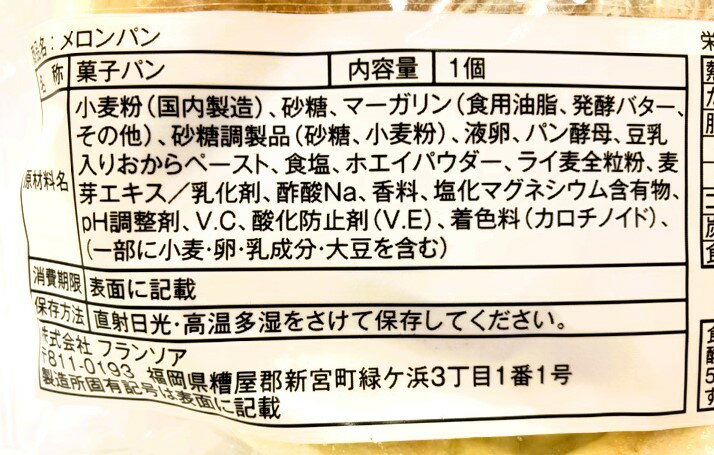 品名：メロンパン
名 称 菓子パン 内容量 1個
小麦粉（国内製造）、砂糖、マーガリン（食用油脂、発酵バター、
その他）、砂糖調製品（砂糖、小麦粉）、液卵、パン酵母、豆乳
入りおからペースト、食塩、ホエイパウダー、ライ麦全粒粉、麦
原材料名 芽エキス／乳化剤、酢酸Na、香料、塩化マグネシウム含有物、
pH調整剤、V.C、酸化防止剤（V.E）、着色料（カロチノイド）、
（一部に小麦・卵・乳成分・大豆を含む）
消費期限 表面に記載
保存方法 直射日光・高温多湿をさけて保存してください。
株式会社 フランソア
〒811-0193 福岡県糟屋郡新宮町緑ケ浜3丁目1番1号
製造所固有記号は表面に記載